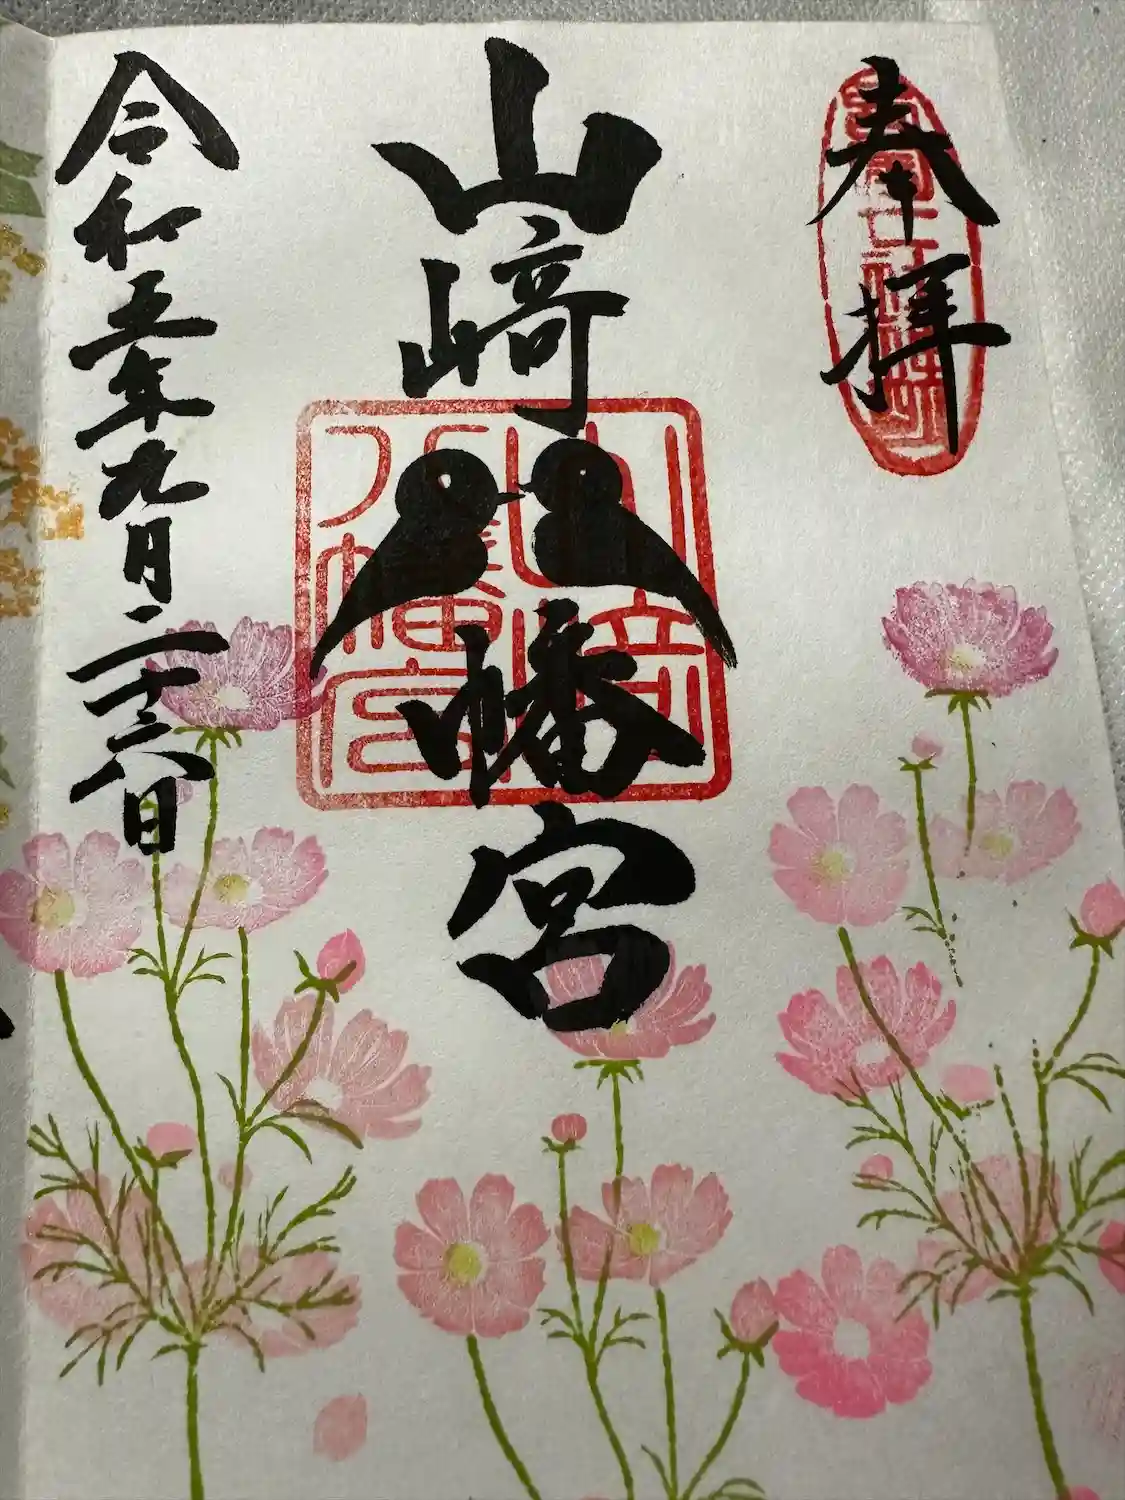 奉拝
山﨑八幡宮
山﨑
八幡宮
令和五年九月二十六日